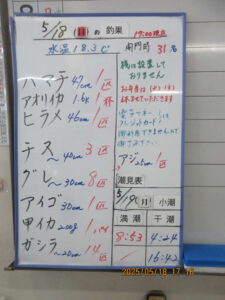 5/18 日 の 釣果
17:00現在
水温 18.3℃
開門時 31名
ハマチ 47cm 1匹
アオリイカ 1.6k 1杯
ヒラメ 46cm 1匹
チヌ 〜40cm 3匹
グレ 〜30cm 8匹
アイゴ 30cm 1匹
甲イカ 200g 1
ガシラ 〜20cm 14匹
桟は設置して
おりません
休ませていただきます
電子マネー
クレジットカード
アジ 25cm 1匹
潮見表
(月) 小潮
満潮 干潮
8:53 4:24
16:42
2025/05/18 17:16